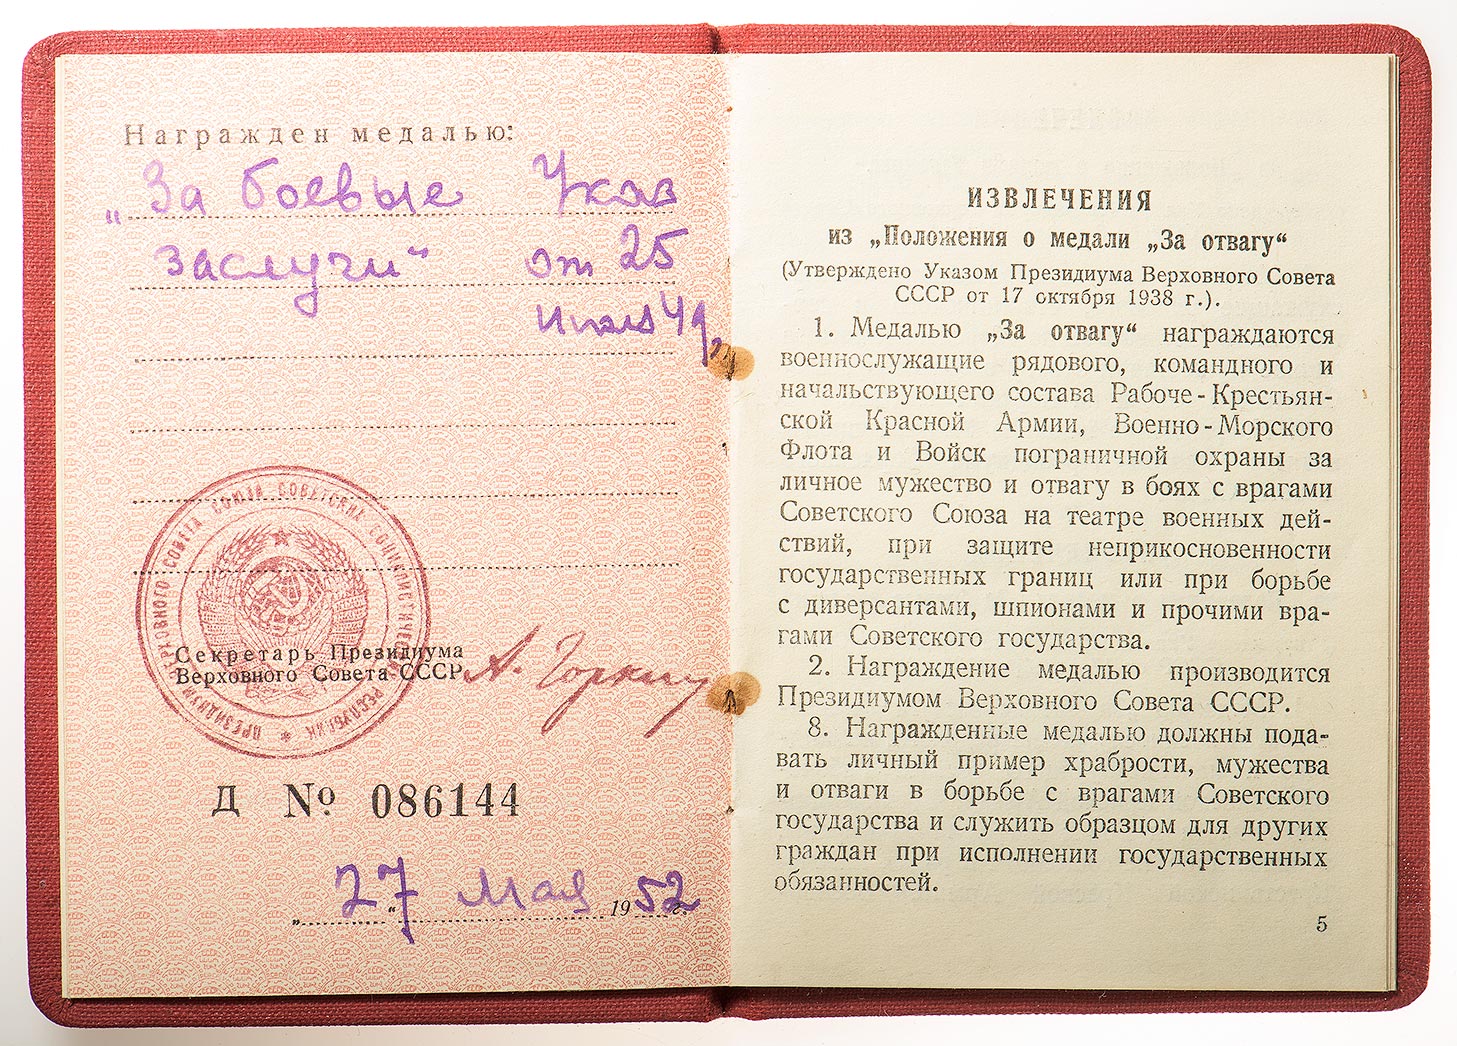 Награжден медалью:
„За боевые Указ
заслуги“ от 25
июля 49 г.
ПРЕЗИДИУМ ВЕРХОВНОГО СОВЕТА СОЮЗА СОВЕТСКИХ СОЦИАЛИСТИЧЕСКИХ РЕСПУБЛИК *
Секретарь Президиума
Верховного Совета СССР А. Горкин
Д № 086144
„27“ Мая 1952 г.
ИЗВЛЕЧЕНИЯ
из „Положения о медали „За отвагу“
(Утверждено Указом Президиума Верховного Совета
СССР от 17 октября 1938 г.).
1. Медалью „За отвагу“ награждаются
военнослужащие рядового, командного и
начальствующего состава Рабоче-Крестьян-
ской Красной Армии, Военно-Морского
Флота и Войск пограничной охраны за
личное мужество и отвагу в боях с врагами
Советского Союза на театре военных дей-
ствий, при защите неприкосновенности
государственных границ или при борьбе
с диверсантами, шпионами и прочими вра-
гами Советского государства.
2. Награждение медалью производится
Президиумом Верховного Совета СССР.
8. Награжденные медалью должны пода-
вать личный пример храбрости, мужества
и отваги в борьбе с врагами Советского
государства и служить образцом для других
граждан при исполнении государственных
обязанностей.
5